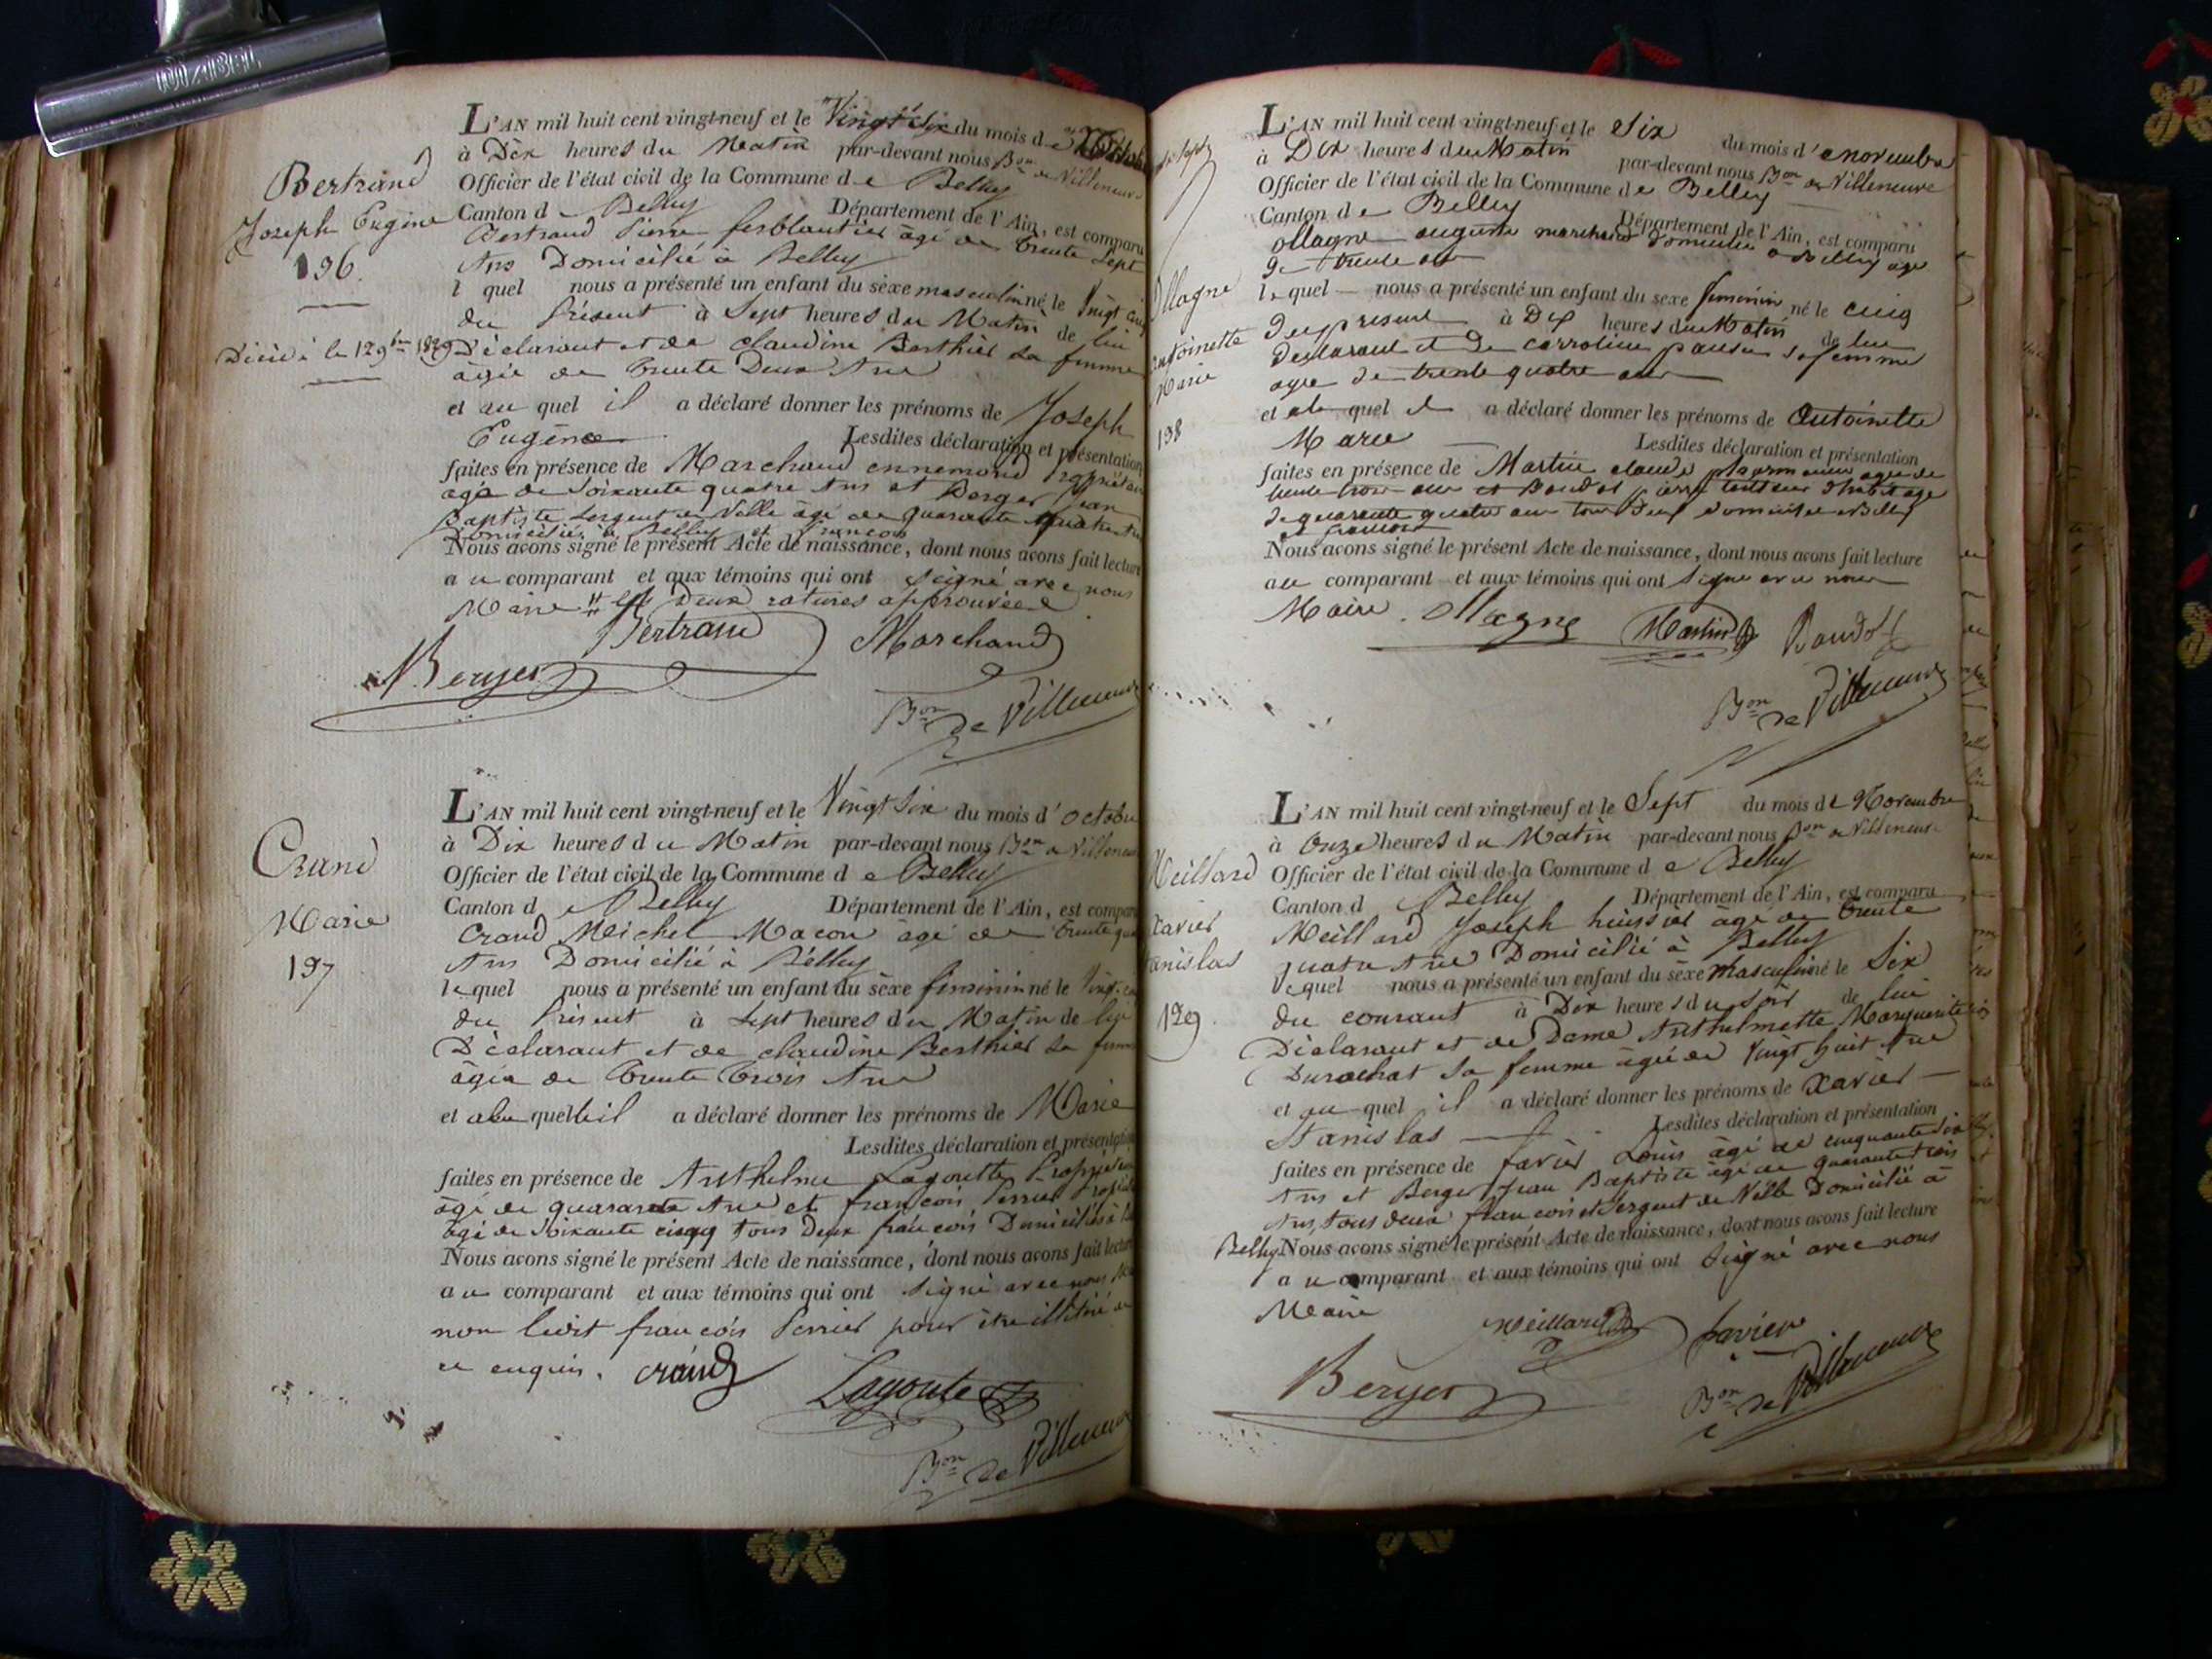 L'AN mil huit cent vingt-neuf et le Vingt Six du mois d
à Dix heures du Matin par-devant nous Bon de Villeneuve
Officier de l'état civil de la Commune de Belley
Canton de Belley Département de l'Ain, est comparu
Bertrand Pierre ferblantier âgé de trente Sept
Ans Domicilié à Belley
lequel nous a présenté un enfant du sèxe masculin né le Vingt cinq
du Présent à Sept heures du Matin de lui
Déclarant et de claudine Berthier sa femme
âgée de trente Deux Ans
et au quel il a déclaré donner les prénoms de Joseph
Eugène Lesdites déclaration et présentation
faites en présence de Marchand ennemond Propriétaire
âgé de Soixante quatre Ans et Berger Jean
Baptiste Sergent de Ville âgé de quarante quatre Ans
Domiciliés à Belley et françois
Nous avons signé le présent Acte de naissance, dont nous avons fait lecture
au comparant et aux témoins qui ont signé avec nous
Maire deux ratures approuvées
Bertrand Marchand
Berger
Bon de Villeneuve
Bertrand
Joseph Eugène
196.
Décédé le 12 9bre 1829
L'AN mil huit cent vingt-neuf et le Vingt Six du mois d'octobre
à Dix heures du Matin par-devant nous Bon de Villeneuve
Officier de l'état civil de la Commune de Belley
Canton de Belley Département de l'Ain, est comparu
Crand Michel Macon âgé de trente
Ans Domicilié à Belley
lequel nous a présenté un enfant du sèxe feminin né le Vingt
du Présent à Sept heures du Matin de lui
Déclarant et de claudine Berthier sa femme
âgée de trente trois Ans
et il a déclaré donner les prénoms de Marie
Lesdites déclaration et présentation
faites en présence de Anthelme Lagoutte Propriétaire
âgé de quarante Ans et françois Perrier
âgé de Soixante cinq tous Deux françois Domiciliés à
Nous avons signé le présent Acte de naissance, dont nous avons fait lecture
au comparant et aux témoins qui ont signé avec nous
non ledit françois Perrier pour être illitéré de
ce enquis. crand Lagoute
Bon de Villeneuve
Crand
Marie
197
L'AN mil huit cent vingt-neuf et le Six du mois d'enovembre
à Dix heures du Matin par-devant nous Bon de Villeneuve
Officier de l'état civil de la Commune de Belley
Canton de Belley Département de l'Ain, est comparu
ollagne auguste marchand domicilié a Belley age
de trente
lequel nous a présenté un enfant du sexe feminin né le cinq
du present à Dix heures du Matin de lui
declarant et de carroline sa femme
agee de trente quatre ans
et quel il a déclaré donner les prénoms de Antoinette
Marie Lesdites déclaration et présentation
faites en présence de Martin claude age de
trente trois ans et Baudot pierre age
de quarante quatre ans tous deux domiciliés Belley
et francois
Nous avons signé le présent Acte de naissance, dont nous avons fait lecture
au comparant et aux témoins qui ont signe avec nous
Maire. Ollagne Martin Baudot
Bon de Villeneuve
Ollagne
antoinette
Marie
198
L'AN mil huit cent vingt-neuf et le Sept du mois de Novembre
à Onze heures du Matin par-devant nous Bon de Villeneuve
Officier de l'état civil de la Commune de Belley
Canton d Belley Département de l'Ain, est comparu
Meillard Joseph huissier âgé de trente
quatre Ans Domicilié à Belley
lequel nous a présenté un enfant du sèxe masculin né le Six
du courant à Dix heures du soir de lui
Déclarant et de Dame Anthelmette Marguerite
Durochat sa femme âgée de Vingt huit Ans
et au quel il a déclaré donner les prénoms de Xavier
Stanislas Lesdites déclaration et présentation
faites en présence de favier Louis âgé de cinquante Six
Ans et Berger Jean Baptiste âgé de quarante trois
Ans, tous deux françois et Sergent de Ville Domicilié à
Belley Nous avons signé le présent Acte de naissance, dont nous avons fait lecture
au comparant et aux témoins qui ont signé avec nous
Maire Meillard favier
Berger Bon de Villeneuve
Meillard
Xavier
Stanislas
129.